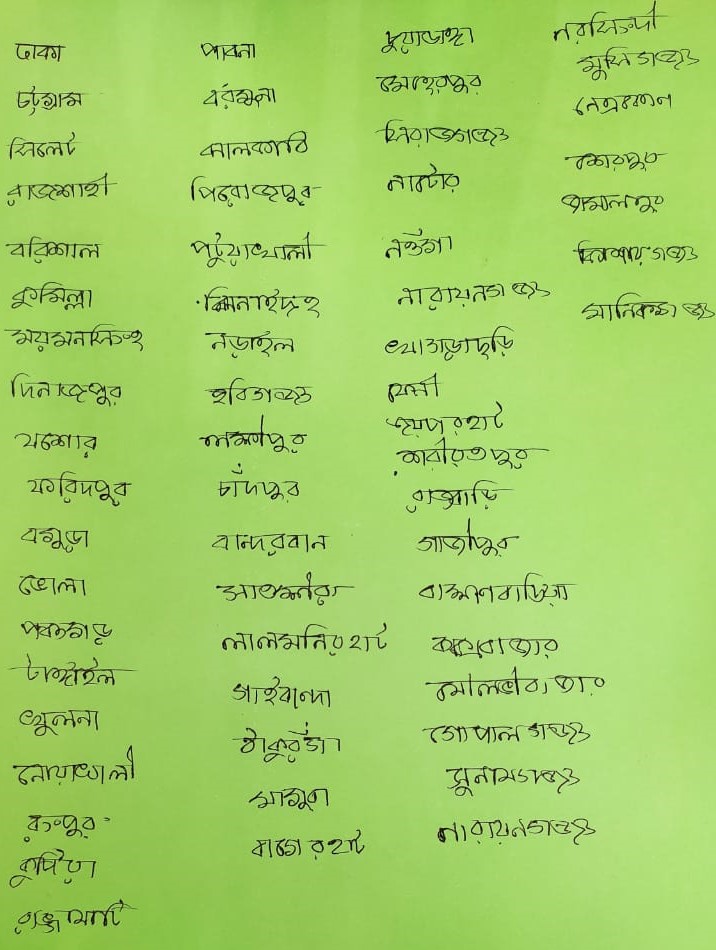 ঢাকা
চট্টগ্রাম
সিলেট
রাজশাহী
বরিশাল
কুমিল্লা
ময়মনসিংহ
দিনাজপুর
যশোর
ফরিদপুর
বগুড়া
ভোলা
পঞ্চগড়
টাঙ্গাইল
খুলনা
নোয়াখালী
রংপুর
কুষ্টিয়া
রাঙ্গামাটি
পাবনা
বরগুনা
ঝালকাঠি
পিরোজপুর
পটুয়াখালী
ঝিনাইদহ
নড়াইল
হবিগঞ্জ
লক্ষ্মীপুর
চাঁদপুর
বান্দরবান
সাতক্ষীরা
লালমনিরহাট
গাইবান্দা
ঠাকুরগাঁ
মাগুরা
বাগেরহাট
চুয়াডাঙ্গা
মেহেরপুর
সিরাজগঞ্জ
নাটোর
নওগাঁ
নারায়নগঞ্জ
খাগড়াছড়ি
ফেনী
জয়পুরহাট
শরীয়তপুর
রাজবাড়ি
গাজীপুর
ব্রাহ্মণবাড়িয়া
কক্সবাজার
মৌলভীবাজার
গোপালগঞ্জ
সুনামগঞ্জ
নারায়নগঞ্জ
নরসিংদী
মুন্সিগঞ্জ
নেত্রকোণা
শেরপুর
জামালপুর
কিশোরগঞ্জ
মানিকগঞ্জ